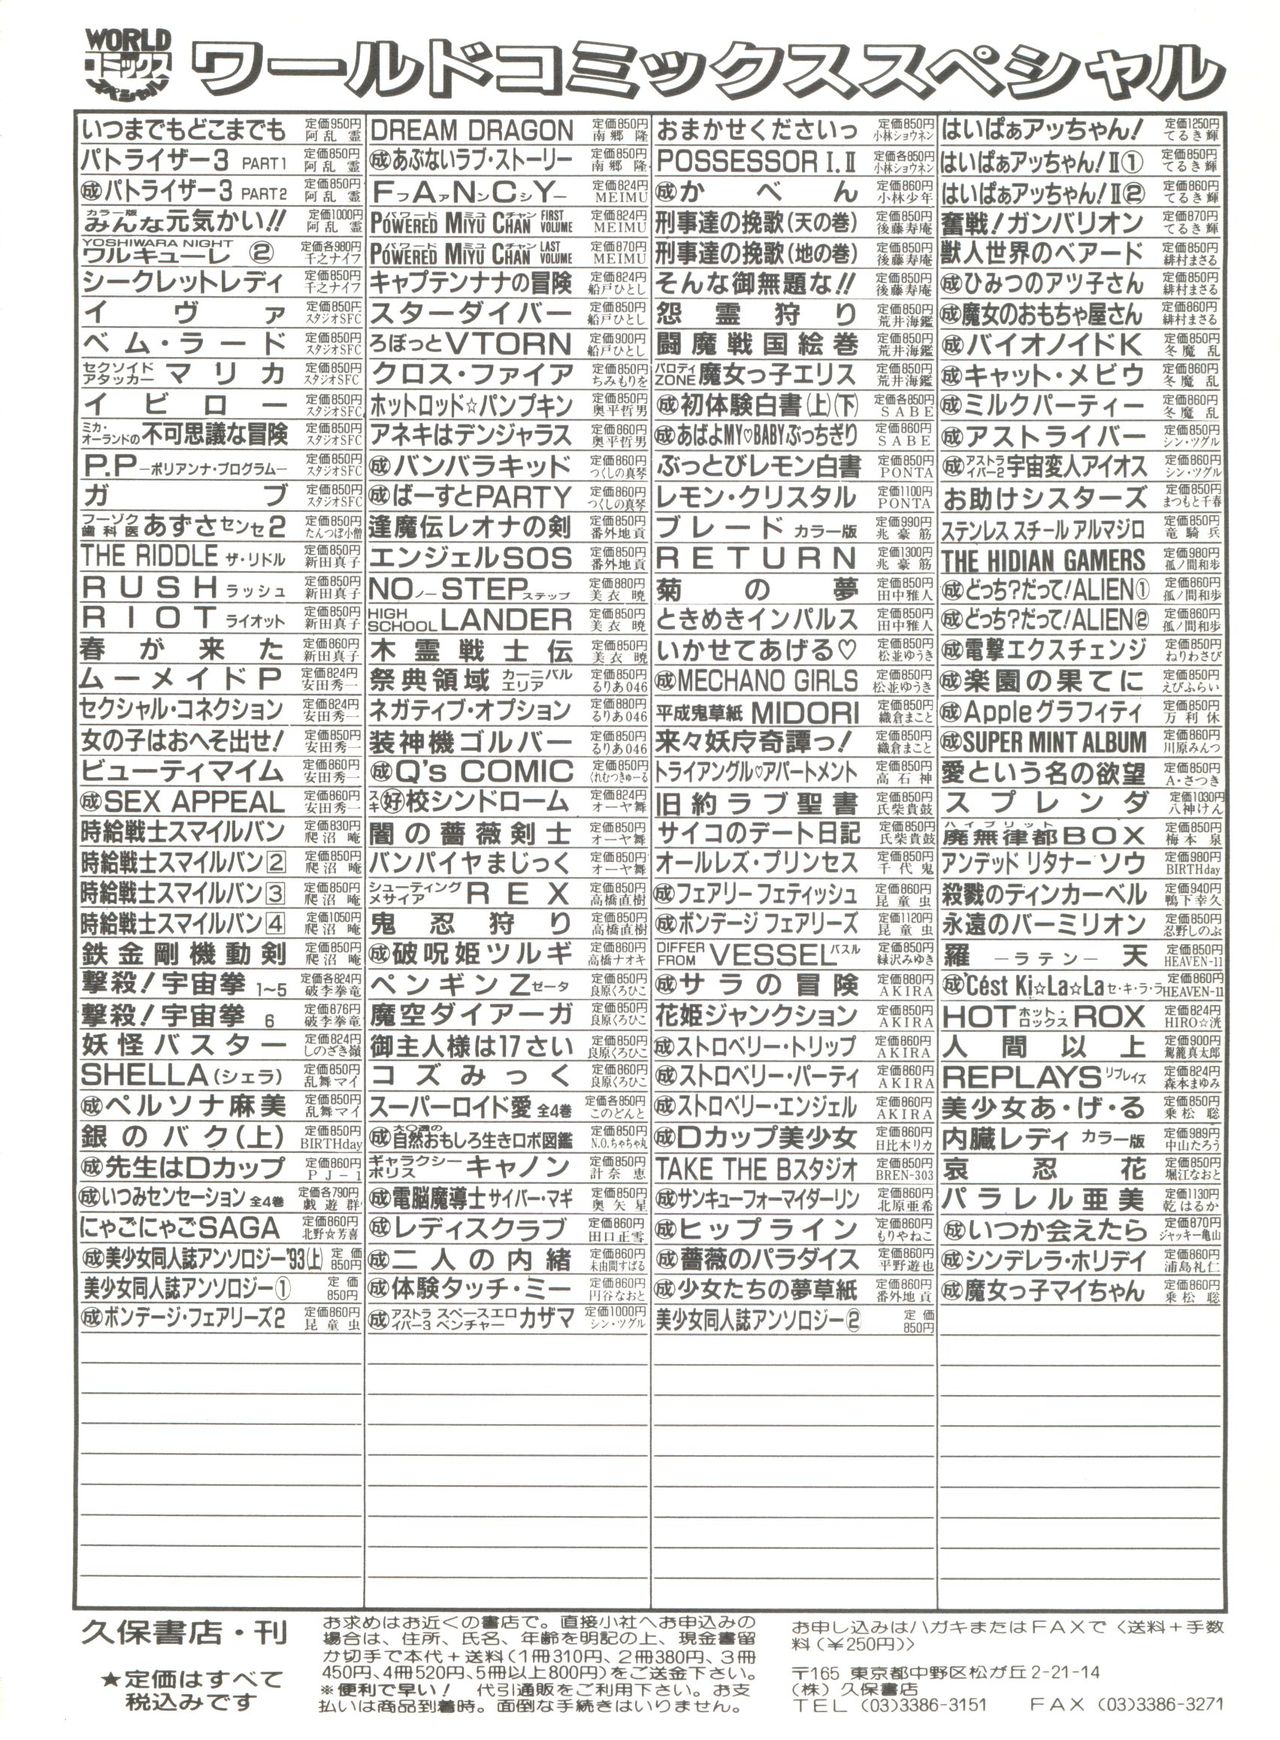 WORLD
コミックス
スペシャル
ワールドコミックススペシャル
いつまでもどこまでも 定価950円 阿乱霊
パトライザー3 PART1 定価850円 阿乱霊
成パトライザー3 PART2 定価850円 阿乱霊
カラー版 みんな元気かい!! 定価1000円 阿乱霊
YOSHIWARA NIGHT ワルキューレ ② 定価各980円 千之ナイフ
シークレットレディ 定価850円 千之ナイフ
イヴァ 定価850円 スタジオSFC
ベム・ラード 定価850円 スタジオSFC
セクソイドアタッカー マリカ 定価850円 スタジオSFC
イビロー 定価850円 スタジオSFC
ミカ・オーランドの不可思議な冒険 定価850円 スタジオSFC
P.P―ポリアンナ・プログラム― 定価850円 スタジオSFC
ガブ 定価850円 スタジオSFC
フーゾク歯科医 あずさセンセ2 定価850円 たんつぼ小僧
THE RIDDLE ザ・リドル 定価850円 新田真子
RUSH ラッシュ 定価850円 新田真子
RIOT ライオット 定価850円 新田真子
春が来た 定価860円 新田真子
ムーメイドP 定価824円 安田秀一
セクシャル・コネクション 定価824円 安田秀一
女の子はおへそ出せ! 定価850円 安田秀一
ビューティマイム 定価860円 安田秀一
成SEX APPEAL 定価860円 安田秀一
時給戦士スマイルバン 定価830円 爬沼竜
時給戦士スマイルバン2 定価850円
時給戦士スマイルバン3 定価850円
時給戦士スマイルバン4 定価1050円
鉄金剛機動剣 定価850円
撃殺!宇宙拳 1~5 定価各824円 破李拳竜
撃殺!宇宙拳 6 定価876円 破李拳竜
妖怪バスター 定価824円 しのざき嶺
SHELLA(シェラ) 定価850円 乱舞マイ
成ペルソナ麻美 定価850円 乱舞マイ
銀のバク(上) 定価850円 BIRTHday
成先生はDカップ 定価860円 PJ-1
成いつみセンセーション 全4巻 定価各790円 戯遊群
にゃごにゃごSAGA 定価860円 北野☆芳喜
成美少女同人誌アンソロジー'93(上) 定価850円
美少女同人誌アンソロジー① 定価850円
成ボンデージ・フェアリーズ2 定価860円 昆童虫
DREAM DRAGON 定価850円 南郷隆
成あぶないラブ・ストーリー 定価850円 南郷隆
FファAンNシCーY 定価824円 MEIMU
POWERED パワード MIYU ミュ CHAN チャン FIRST VOLUME 定価824円 MEIMU
POWERED パワード MIYU ミュ CHAN チャン LAST VOLUME 定価870円 MEIMU
キャプテンナナの冒険 定価824円 船戸ひとし
スターダイバー 定価850円 船戸ひとし
ろぼっとVTORN 定価900円 船戸ひとし
クロス・ファイア 定価850円 ちみもりを
ホットロッド☆パンプキン 定価850円 奥平哲男
アネキはデンジャラス 定価860円 奥平哲男
成バンバラキッド 定価860円 つくしの真琴
成ばーすとPARTY 定価860円 つくしの真琴
逢魔伝レオナの剣 定価850円 番外地貢
エンジェルSOS 定価850円 番外地貢
NOノーSTEPステップ 定価880円 美衣暁
HIGH SCHOOL LANDER 定価850円 美衣暁
木霊戦士伝 定価850円 美衣暁
祭典領域 カーニバルエリア 定価850円 るりあ046
ネガティブ・オプション 定価880円 るりあ046
装神機ゴルバー 定価850円 るりあ046
成Q's COMIC 定価850円 くれむつきゅーる
スキ好校シンドローム 定価824円 オーヤ舞
闇の薔薇剣士 定価850円 オーヤ舞
バンパイヤまじっく 定価850円 オーヤ舞
シューティングメサイア REX 定価850円 高橋直樹
鬼忍狩り 定価850円 高橋直樹
成破呪姫ツルギ 定価860円 高橋ナオキ
ペンギンZゼータ 定価850円 良原くろひこ
魔空ダイアーガ 定価850円 良原くろひこ
御主人様は17さい 定価850円 良原くろひこ
コズみっく 定価860円 良原くろひこ
スーパーロイド愛 全4巻 定価各850円 このどんと
成大○週の自然おもしろ生きロボ図鑑 定価850円 N.O.ちゃちゃ丸
ギャラクシーポリス キャノン 定価850円 計奈恵
成電脳魔導士サイバー・マギ 定価850円 奥矢星
成レディスクラブ 定価860円 田口正雪
成二人の内緒 定価860円 未由間すばる
成体験タッチ・ミー 定価860円 円谷なおと
成アストライバー3 スペースエロベンチャー カザマ 定価1000円 シン・ツグル
おまかせくださいっ 定価850円 小林ショウネン
POSSESSOR I.II 定価各850円 小林ショウネン
成かべん 定価860円 小林少年
刑事達の挽歌(天の巻) 定価850円 後藤寿庵
刑事達の挽歌(地の巻) 定価850円 後藤寿庵
そんな御無題な!! 定価850円 後藤寿庵
怨霊狩り 定価850円 荒井海鑑
闘魔戦国絵巻 定価850円 荒井海鑑
パロディZONE 魔女っ子エリス 定価850円 荒井海鑑
成初体験白書(上)(下) 定価各850円 SABE
成あばよMY♡BABYぶっちぎり 定価860円 SABE
ぶっとびレモン白書 定価850円 PONTA
レモン・クリスタル 定価1100円 PONTA
ブレード カラー版 定価990円 兆豪筋
RETURN 定価1300円 兆豪筋
菊の夢 定価850円 田中雅人
ときめきインパルス 定価850円 田中雅人
いかせてあげる♡ 定価850円 松並ゆうき
成MECHANO GIRLS 定価850円 松並ゆうき
平成鬼草紙 MIDORI 定価850円 織倉まこと
来々妖庁奇譚っ! 定価850円 織倉まこと
トライアングル♡アパートメント 定価850円 高石神
旧約ラブ聖書 定価850円 氏柴貴鼓
サイコのデート日記 定価850円 氏柴貴鼓
オールレズ・プリンセス 定価850円 千代鬼
成フェアリーフェティッシュ 定価860円 昆童虫
成ボンデージ フェアリーズ 定価1120円 昆童虫
DIFFER FROM VESSELバスル 定価850円 緑沢みゆき
成サラの冒険 定価880円 AKIRA
花姫ジャンクション 定価850円 AKIRA
成ストロベリー・トリップ 定価860円 AKIRA
成ストロベリー・パーティ 定価860円 AKIRA
成ストロベリー・エンジェル 定価860円 AKIRA
成Dカップ美少女 定価860円 日比木リカ
TAKE THE Bスタジオ 定価850円 BREN-303
成サンキューフォーマイダーリン 定価860円 北原亜希
成ヒップライン 定価860円 もりやねこ
成薔薇のパラダイス 定価860円 平野遊也
成少女たちの夢草紙 定価860円 番外地貢
美少女同人誌アンソロジー② 定価850円
はいぱぁアッちゃん! 定価1250円 てるき輝
はいぱぁアッちゃん!II① 定価850円 てるき輝
はいぱぁアッちゃん!II② 定価860円 てるき輝
奮戦!ガンバリオン 定価870円 てるき輝
獣人世界のベアード 定価850円 緋村まさる
成ひみつのアツ子さん 定価850円 緋村まさる
成魔女のおもちゃ屋さん 定価860円 緋村まさる
成バイオノイドK 定価850円 冬魔乱
成キャット・メビウ 定価860円 冬魔乱
成ミルクパーティー 定価860円 冬魔乱
成アストライバー 定価850円 シン・ツグル
成アストライバー2 宇宙変人アイオス 定価860円 シン・ツグル
お助けシスターズ 定価850円 まつもと千春
ステンレス スチール アルマジロ 定価850円 竜騎兵
THE HIDIAN GAMERS 定価980円 孤ノ間和歩
成どっち?だって!ALIEN① 定価860円 孤ノ間和歩
成どっち?だって!ALIEN② 定価860円 孤ノ間和歩
成電撃エクスチェンジ 定価850円 ねりわさび
成楽園の果てに 定価850円 えびふらい
成Appleグラフィティ 定価850円 万利休
成SUPER MINT ALBUM 定価860円 川原みんつ
愛という名の欲望 定価850円 A・さつき
スプレンダ 定価1030円 八神けん
廃無律都ハイブリットBOX 定価850円 梅本泉
アンデッド リタナー ソウ 定価980円 BIRTHday
殺戮のティンカーベル 定価940円 鴨下幸久
永遠のバーミリオン 定価850円 忍野しのぶ
羅―ラテン―天 定価850円 HEAVEN-11
成C'est Ki☆La☆Laセ・キ・ラ・ラ 定価860円 HEAVEN-11
HOTホット・ロックスROX 定価824円 HIRO☆洸
人間以上 定価900円 駕籠真太郎
REPLAYSリプレイズ 定価824円 森本まゆみ
美少女あ・げ・る 定価850円 乗松聡
内臓レディ カラー版 定価989円 中山たろう
哀忍花 定価850円 堀江なおと
パラレル亜美 定価1130円 乾はるか
成いつか会えたら 定価870円 ジャッキー亀山
成シンデレラ・ホリデイ 定価860円 浦島礼仁
成魔女っ子マイちゃん 定価860円 乗松聡
久保書店・刊
★定価はすべて
税込みです
お求めはお近くの書店で。直接小社へお申込みの
場合は、住所、氏名、年齢を明記の上、現金書留
か切手で本代+送料(1冊310円、2冊380円、3冊
450円、4冊520円、5冊以上800円)をご送金下さい。
※便利で早い! 代引通販をご利用下さい。お支
払いは商品到着時。面倒な手続きはいりません。
お申し込みはハガキまたはFAXで〈送料+手数
料(¥250円)〉
〒165 東京都中野区松が丘2-21-14
(株)久保書店
TEL (03)3386-3151 FAX (03)3386-3271